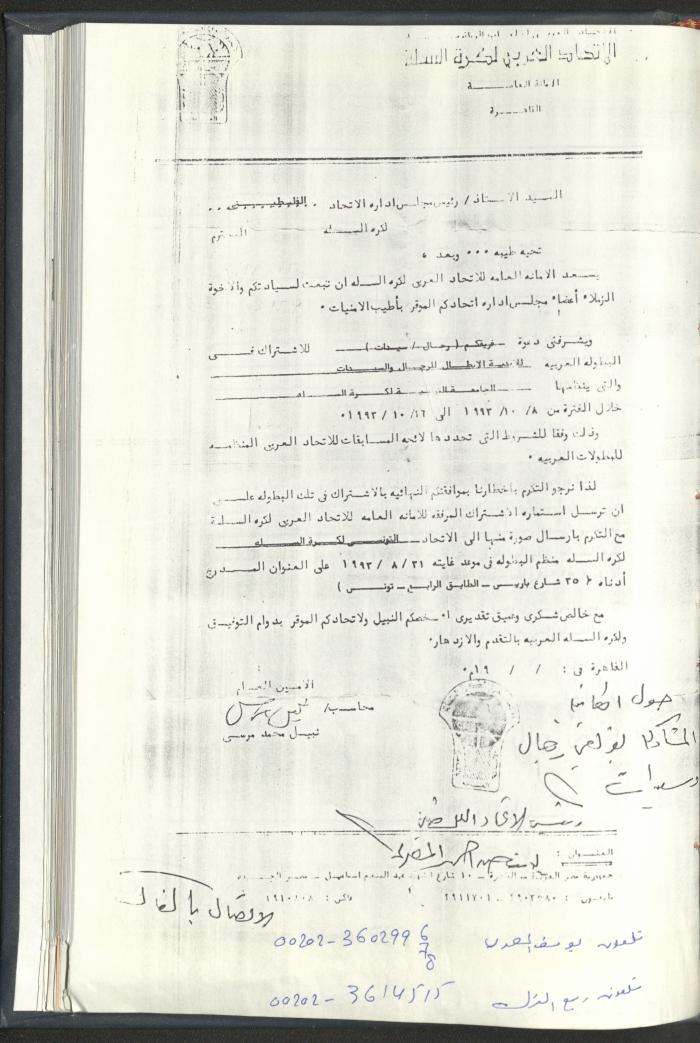 الإتحاد العربي لكرة السلة
الامانة العامـــــة
القاهـــرة
السيد الاستاذ / رئيس مجلس اداره الاتحاد . الفلسطينـــي . .
لكره السله المحترم
تحيه طيبه ٠٠٠ وبعد ،
يسعد الامانه العامه للاتحاد العربى لكره السله ان تبعث لسيادتكم والاخوة
الزملاء أعضاء مجلس اداره اتحادكم الموقر بأطيب الامنيات ٠
ويشرفنى دعوة فريقكم ( رجال / سيدات ) للاشتراك فــى
البطوله العربيه للاندية الابطال للرجال والسيدات
والتى ينظمها الجامعة التونسية لكرة السلة
خلال الفترة من ٨ /١٠ /١٩٩٣ الى ١٦ /١٠ /١٩٩٣ ٠
وذلك وفقا للشروط التى تحددها لائحه المسابقات للاتحاد العربى المنظمـه
للبطولات العربيه ٠
لذا نرجو التكرم باخطارنا بموافقتكم النهائيه بالاشتراك فى تلك البطوله علــى
ان ترسل استماره الاشتراك المرفقه للامانه العامه للاتحاد العربى لكره السلـة
مع التكرم بارسال صورة منها الى الاتحاد التونسى لكرة السلة
لكره السله منظم البطوله فى موعد غايته ٣١ /٨ /١٩٩٣ على العنوان المـدرج
أدناه ( ٣٥ شارع باريس ـ الطابق الرابع ـ تونس )
مع خالص شكرى وعميق تقديرى لشخصكم النبيل ولاتحادكم الموقر بدوام التوفيـق
ولكره السله العربيه بالتقدم والازدهار٠
القاهرة فى : / / ١٩م٠
الأمين العـام
محاسب/
نبيـل محمد موسـى
حول امكانية
المشاركة بفريقي رجال
وسيدات
رئيس الاتحاد الفلسطيني
العنـوان :
جمهورية مصر العربية ـ القاهرة ـ ١٠ شارع عبد المنعم اسماعيل ـ مصر الجديدة
تليفون : ٢٩٠٣٥٨٠ ـ ٢٩١١٧٠١ فاكس :
الاتصال بالفاكس
تلفون يوسف 00202-360299
6
7
8
تلفون ربيع الترك 00202 - 3614515